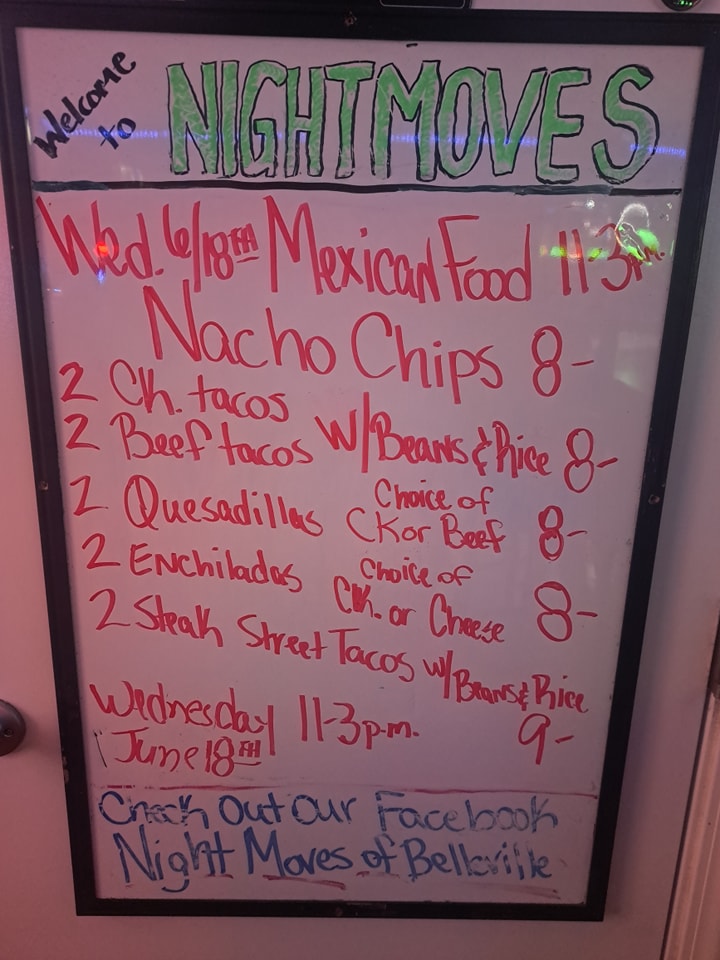 Welcome to NIGHTMOVES
Wed. 6/18TH Mexican Food 11-3pm.
Nacho Chips 8-
2 Ch. tacos
2 Beef tacos W/Beans & Rice 8-
2 Quesadillas Choice of CK or Beef 8-
2 Enchiladas Choice of CK. or Cheese 8-
2 Steak Street Tacos w/Beans & Rice 9-
Wednesday 11-3p.m.
June 18TH
Check Out Our Facebook
Night Moves of Belleville